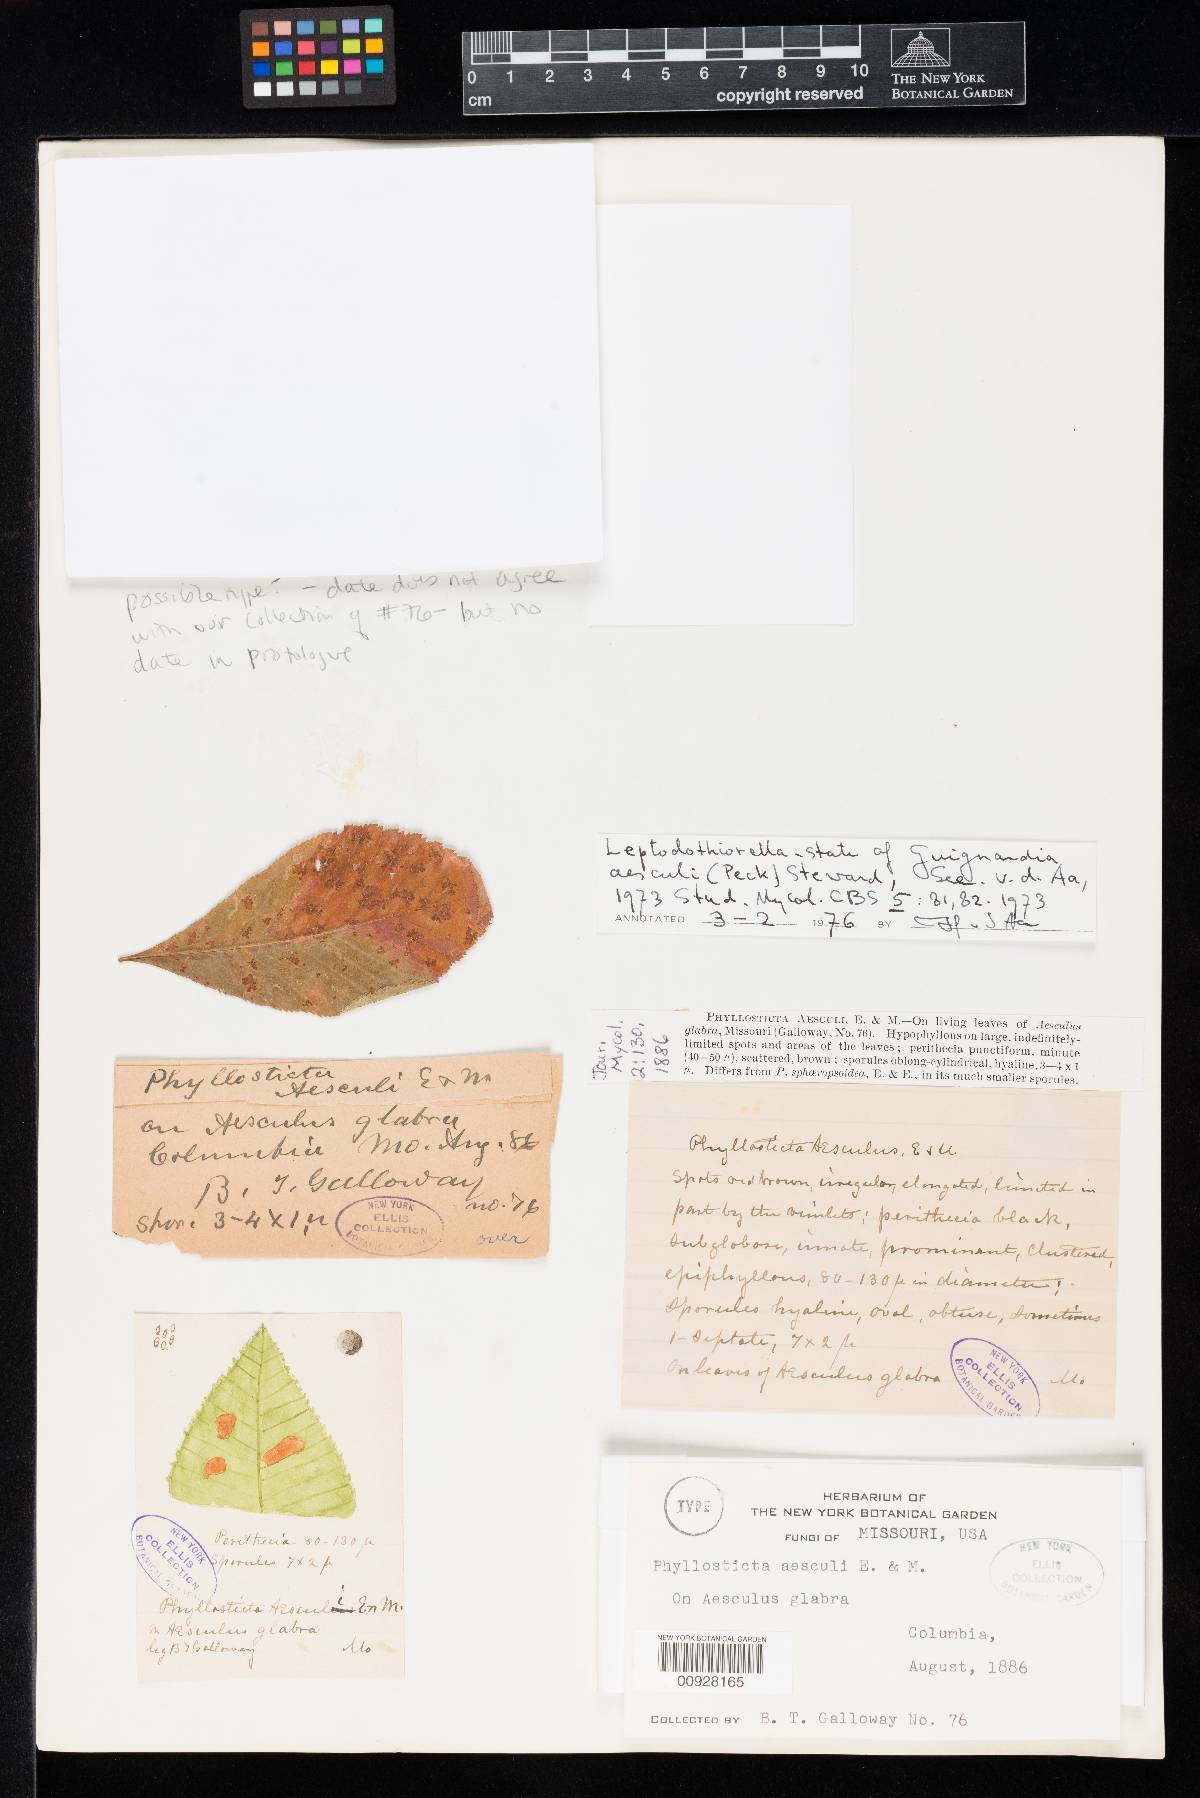 0 1 2 3 4 5 6 7 8 9 10
cm
copyright reserved
THE NEW YORK
BOTANICAL GARDEN
possible type? - date does not agree
with our collection of #76 - but no
date in protologue
Leptodothiorella-state of Guignardia
aesculi (Peck) Steward, See. v. d. Aa,
1973 Stud. Mycol. CBS 5: 81,82. 1973
ANNOTATED 3-2 1976 BY v d Aa
Jour.
Mycol.
2:130,
1886
PHYLLOSTICTA AESCULI, E. & M.—On living leaves of Aesculus
glabra, Missouri (Galloway, No. 76). Hypophyllous on large, indefinitely-
limited spots and areas of the leaves; perithecia punctiform, minute
(40–50 µ), scattered, brown; sporules oblong-cylindrical, hyaline, 3–4 x 1
µ. Differs from P. sphæropsoidea, E. & E., in its much smaller sporules.
Phyllosticta
Aesculi E & M
on Aesculus glabra
Columbia Mo. Aug. 86
B. T. Galloway
no. 76
Spor. 3-4 X 1 µ
over
NEW YORK
ELLIS
COLLECTION
BOTANICAL GARDEN
Phyllosticta Aesculus, E & M
Spots red brown, irregular, elongated, limited in
part by the veinlets; perithecia black,
subglobose, innate, prominent, clustered,
epiphyllous, 80-130 µ in diameter;
Sporules hyaline, oval, obtuse, sometimes
1-septate, 7 x 2 µ
On leaves of Aesculus glabra
Mo
NEW YORK
ELLIS
COLLECTION
BOTANICAL GARDEN
Perithecia 80-130 µ
Sporules 7 x 2 µ
NEW YORK
ELLIS
COLLECTION
BOTANICAL GARDEN
Phyllosticta Aesculi E & M.
on Aesculus glabra
leg B T Galloway
Mo
TYPE
HERBARIUM OF
THE NEW YORK BOTANICAL GARDEN
FUNGI OF MISSOURI, USA
NEW YORK
ELLIS
COLLECTION
BOTANICAL GARDEN
Phyllosticta aesculi E. & M.
On Aesculus glabra
Columbia,
August, 1886
NEW YORK BOTANICAL GARDEN
00928165
COLLECTED BY B. T. Galloway No. 76